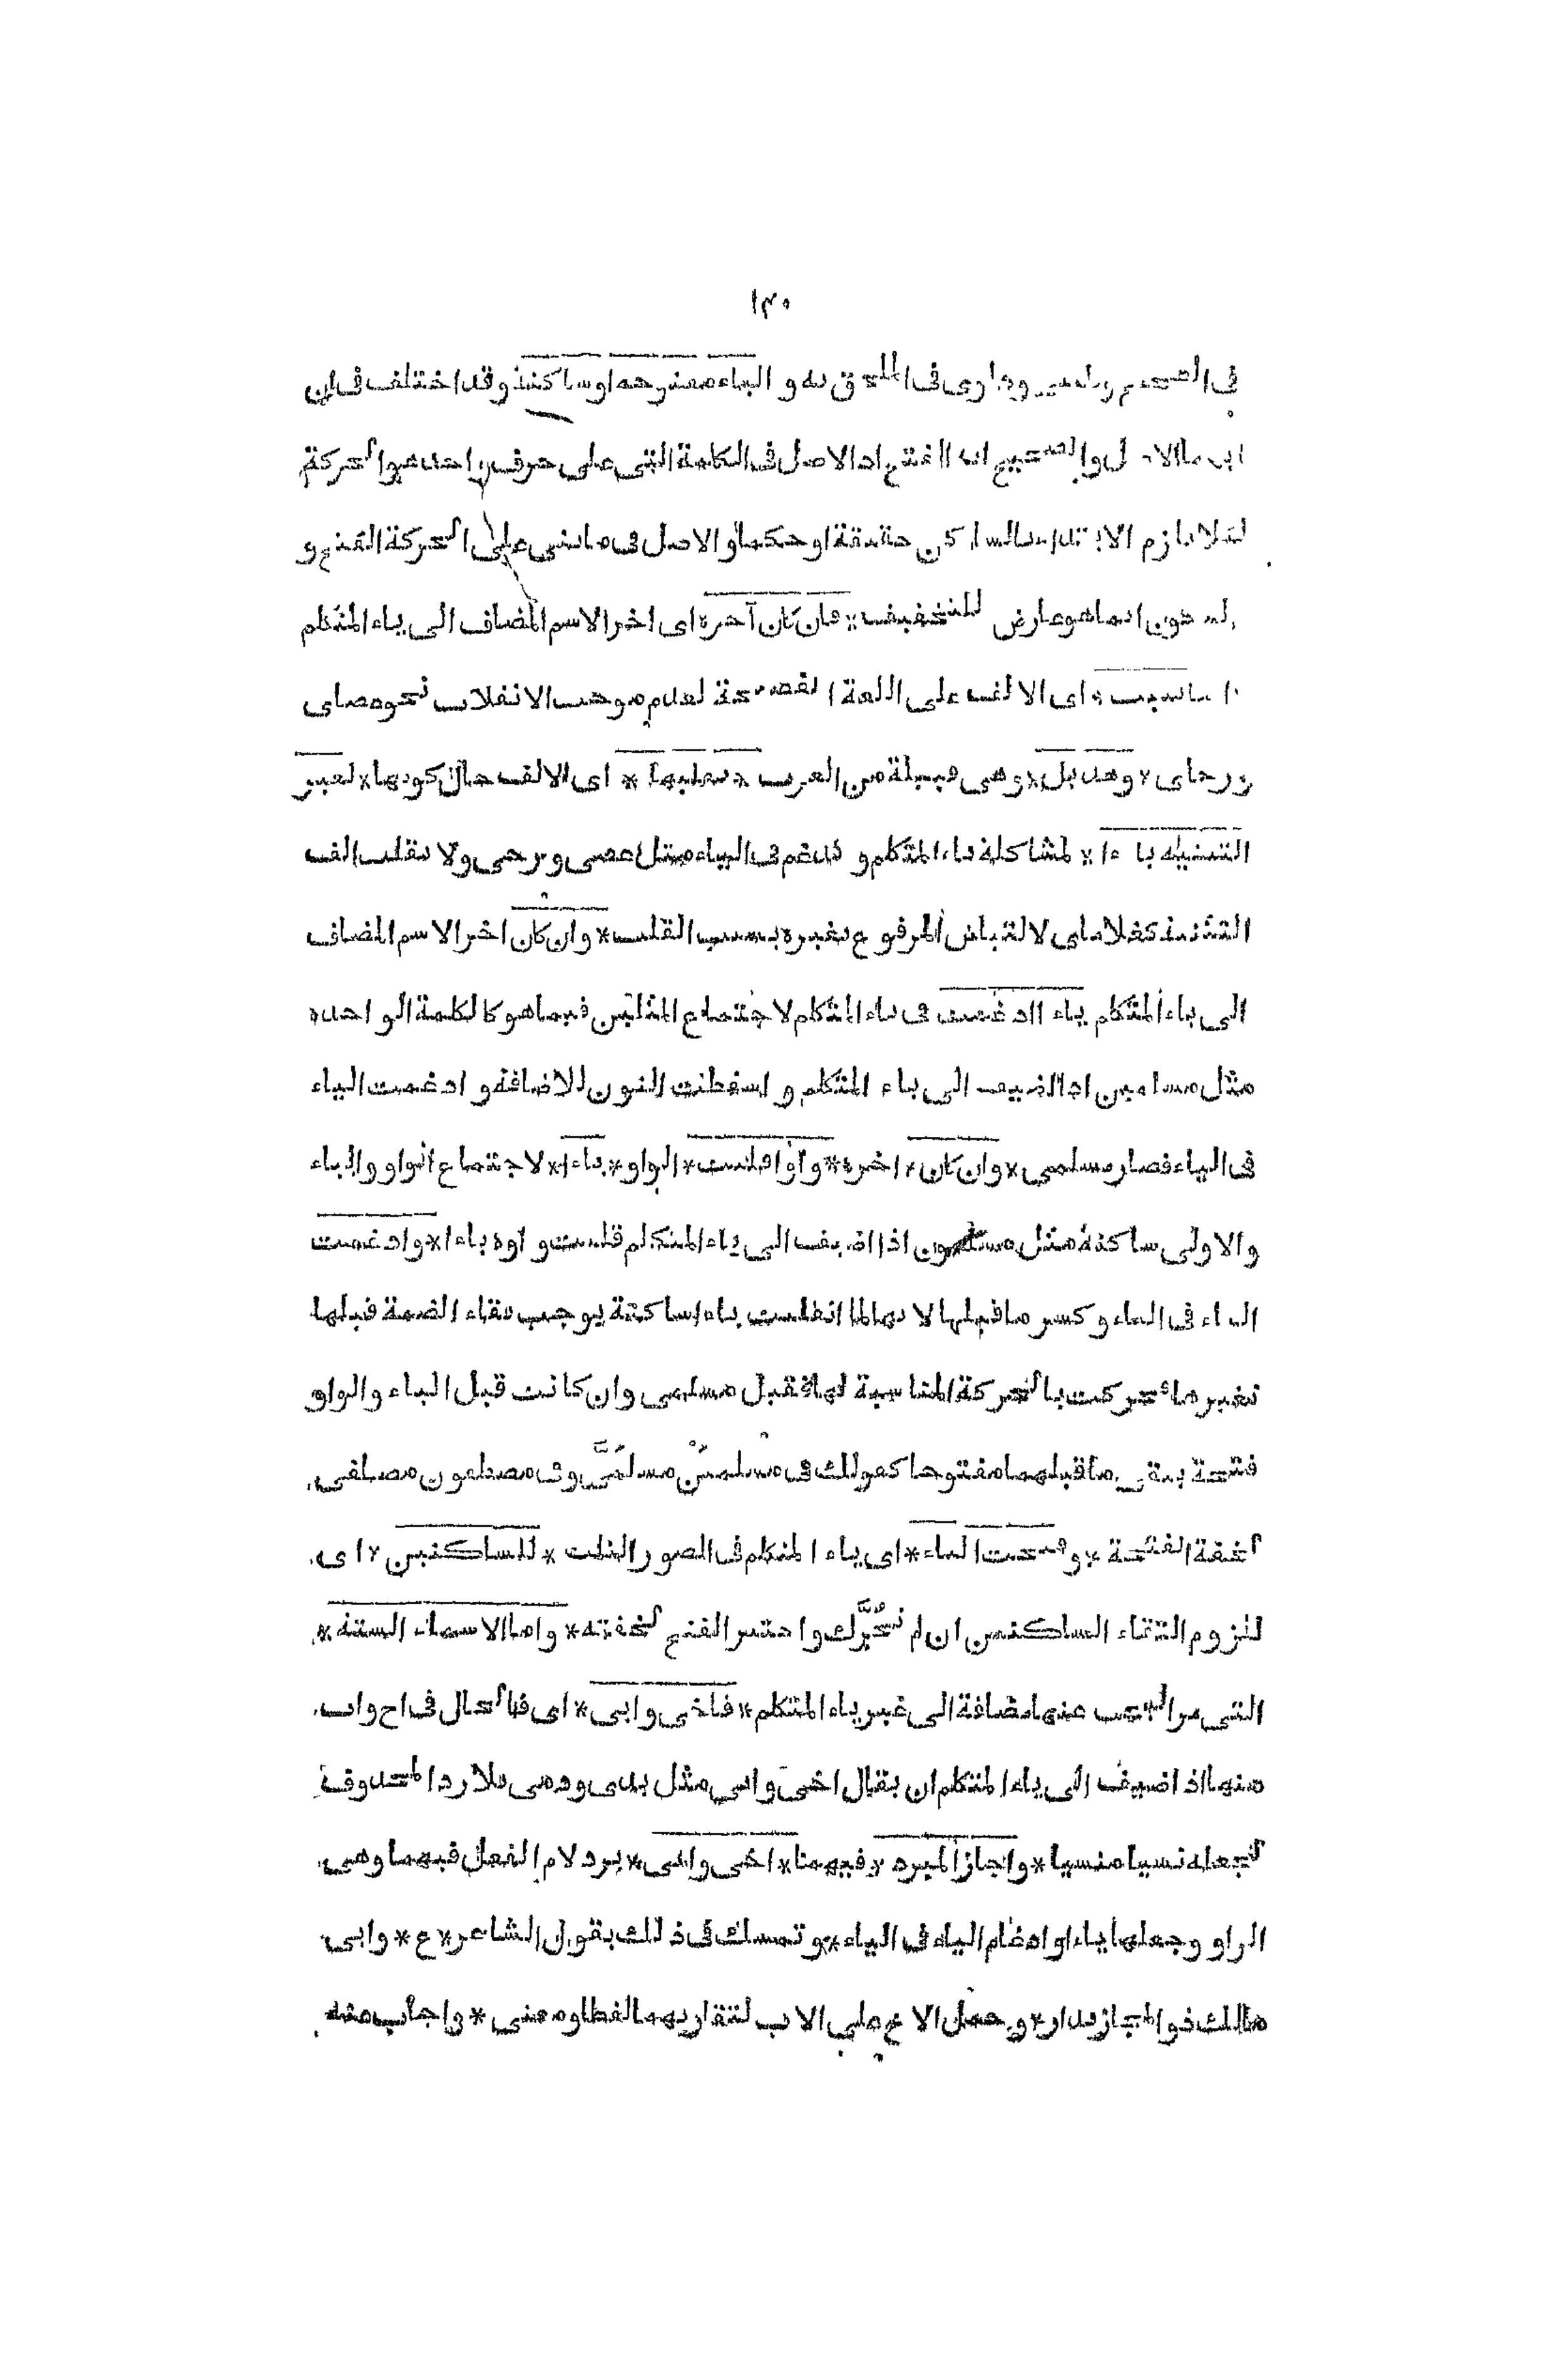 ١٣٥
فى الصحيح وظبيى ودلوى فى الملحق به و الياء مفتوحة او ساكنة وقد اختلف فى ان
ايهما الاصل والصحيح انه الفتح اذ الاصل فى الكلمة التى على حرف واحد هو الحركة
لئلا يلزم الابتداء بالساكن حقيقة او حكما والاصل فى ما بنى على الحركة الفتح و
السكون انما هو عارض للتخفيف * فان كان آخره اى اخر الاسم المضاف الى ياء المتكلم
الفا ثبتت * اى الالف على اللغة الفصيحة لعدم موجب الانقلاب نحو عصاى
ورحاى * وهذيل * وهى قبيلة من العرب * تقلبها * اى الالف حال كونها * لغير
التثنية ياءا * لمشاكلة ياء المتكلم و تدغم فى الياء مثل عصى ورحى ولا تقلب الف
التثنية كغلاماى لالتباس المرفوع بغيره بسبب القلب * وان كان اخر الاسم المضاف
الى ياء المتكلم ياء ادغمت فى ياء المتكلم لاجتماع المثلين فيما هو كالكلمة الواحدة
مثل مسلمين اذا اضيف الى ياء المتكلم و اسقطت النون للاضافة و ادغمت الياء
فى الياء فصار مسلمى * وان كان * اخره * واوا قلبت * الواو * ياءا * لاجتماع الواو والياء
والاولى ساكنة مثل مسلمون اذا اضيف الى ياء المتكلم قلبت واوه ياءا * وادغمت
الياء فى الياء وكسر ما قبلها لانها لما انقلبت ياءا ساكنة يوجب بقاء الضمة قبلها
تغيرها فحركت بالحركة المناسبة لها فقيل مسلمى وان كانت قبل الياء والواو
فتحة بقى ما قبلهما مفتوحا كقولك فى مسلمين مسلمىّ وفى مصطفون مصطفى
لخفة الفتحة * وفتحت الياء * اى ياء المتكلم فى الصور الثلث * للساكنين * اى
للزوم التقاء الساكنين ان لم تحرّك واختير الفتح لخفته * واما الاسماء الستة *
التى مر البحث عنها مضافة الى غير ياء المتكلم * فاخى وابى * اى فالحال فى اخ واب
منها اذا اضيف الى ياء المتكلم ان يقال اخى وابى مثل يدى ودمى بلا رد المحذوف
لجعله نسيا منسيا * واجاز المبرد * فيهما * اخى وابى * برد لام الفعل فيهما وهى
الواو وجعلها ياء او ادغام الياء فى الياء * وتمسك فى ذلك بقول الشاعر * ع * وابى
مالك ذو المجاز بدار * وحمل الاخ على الاب لتقاربهما لفظا ومعنى * واجاب عنه